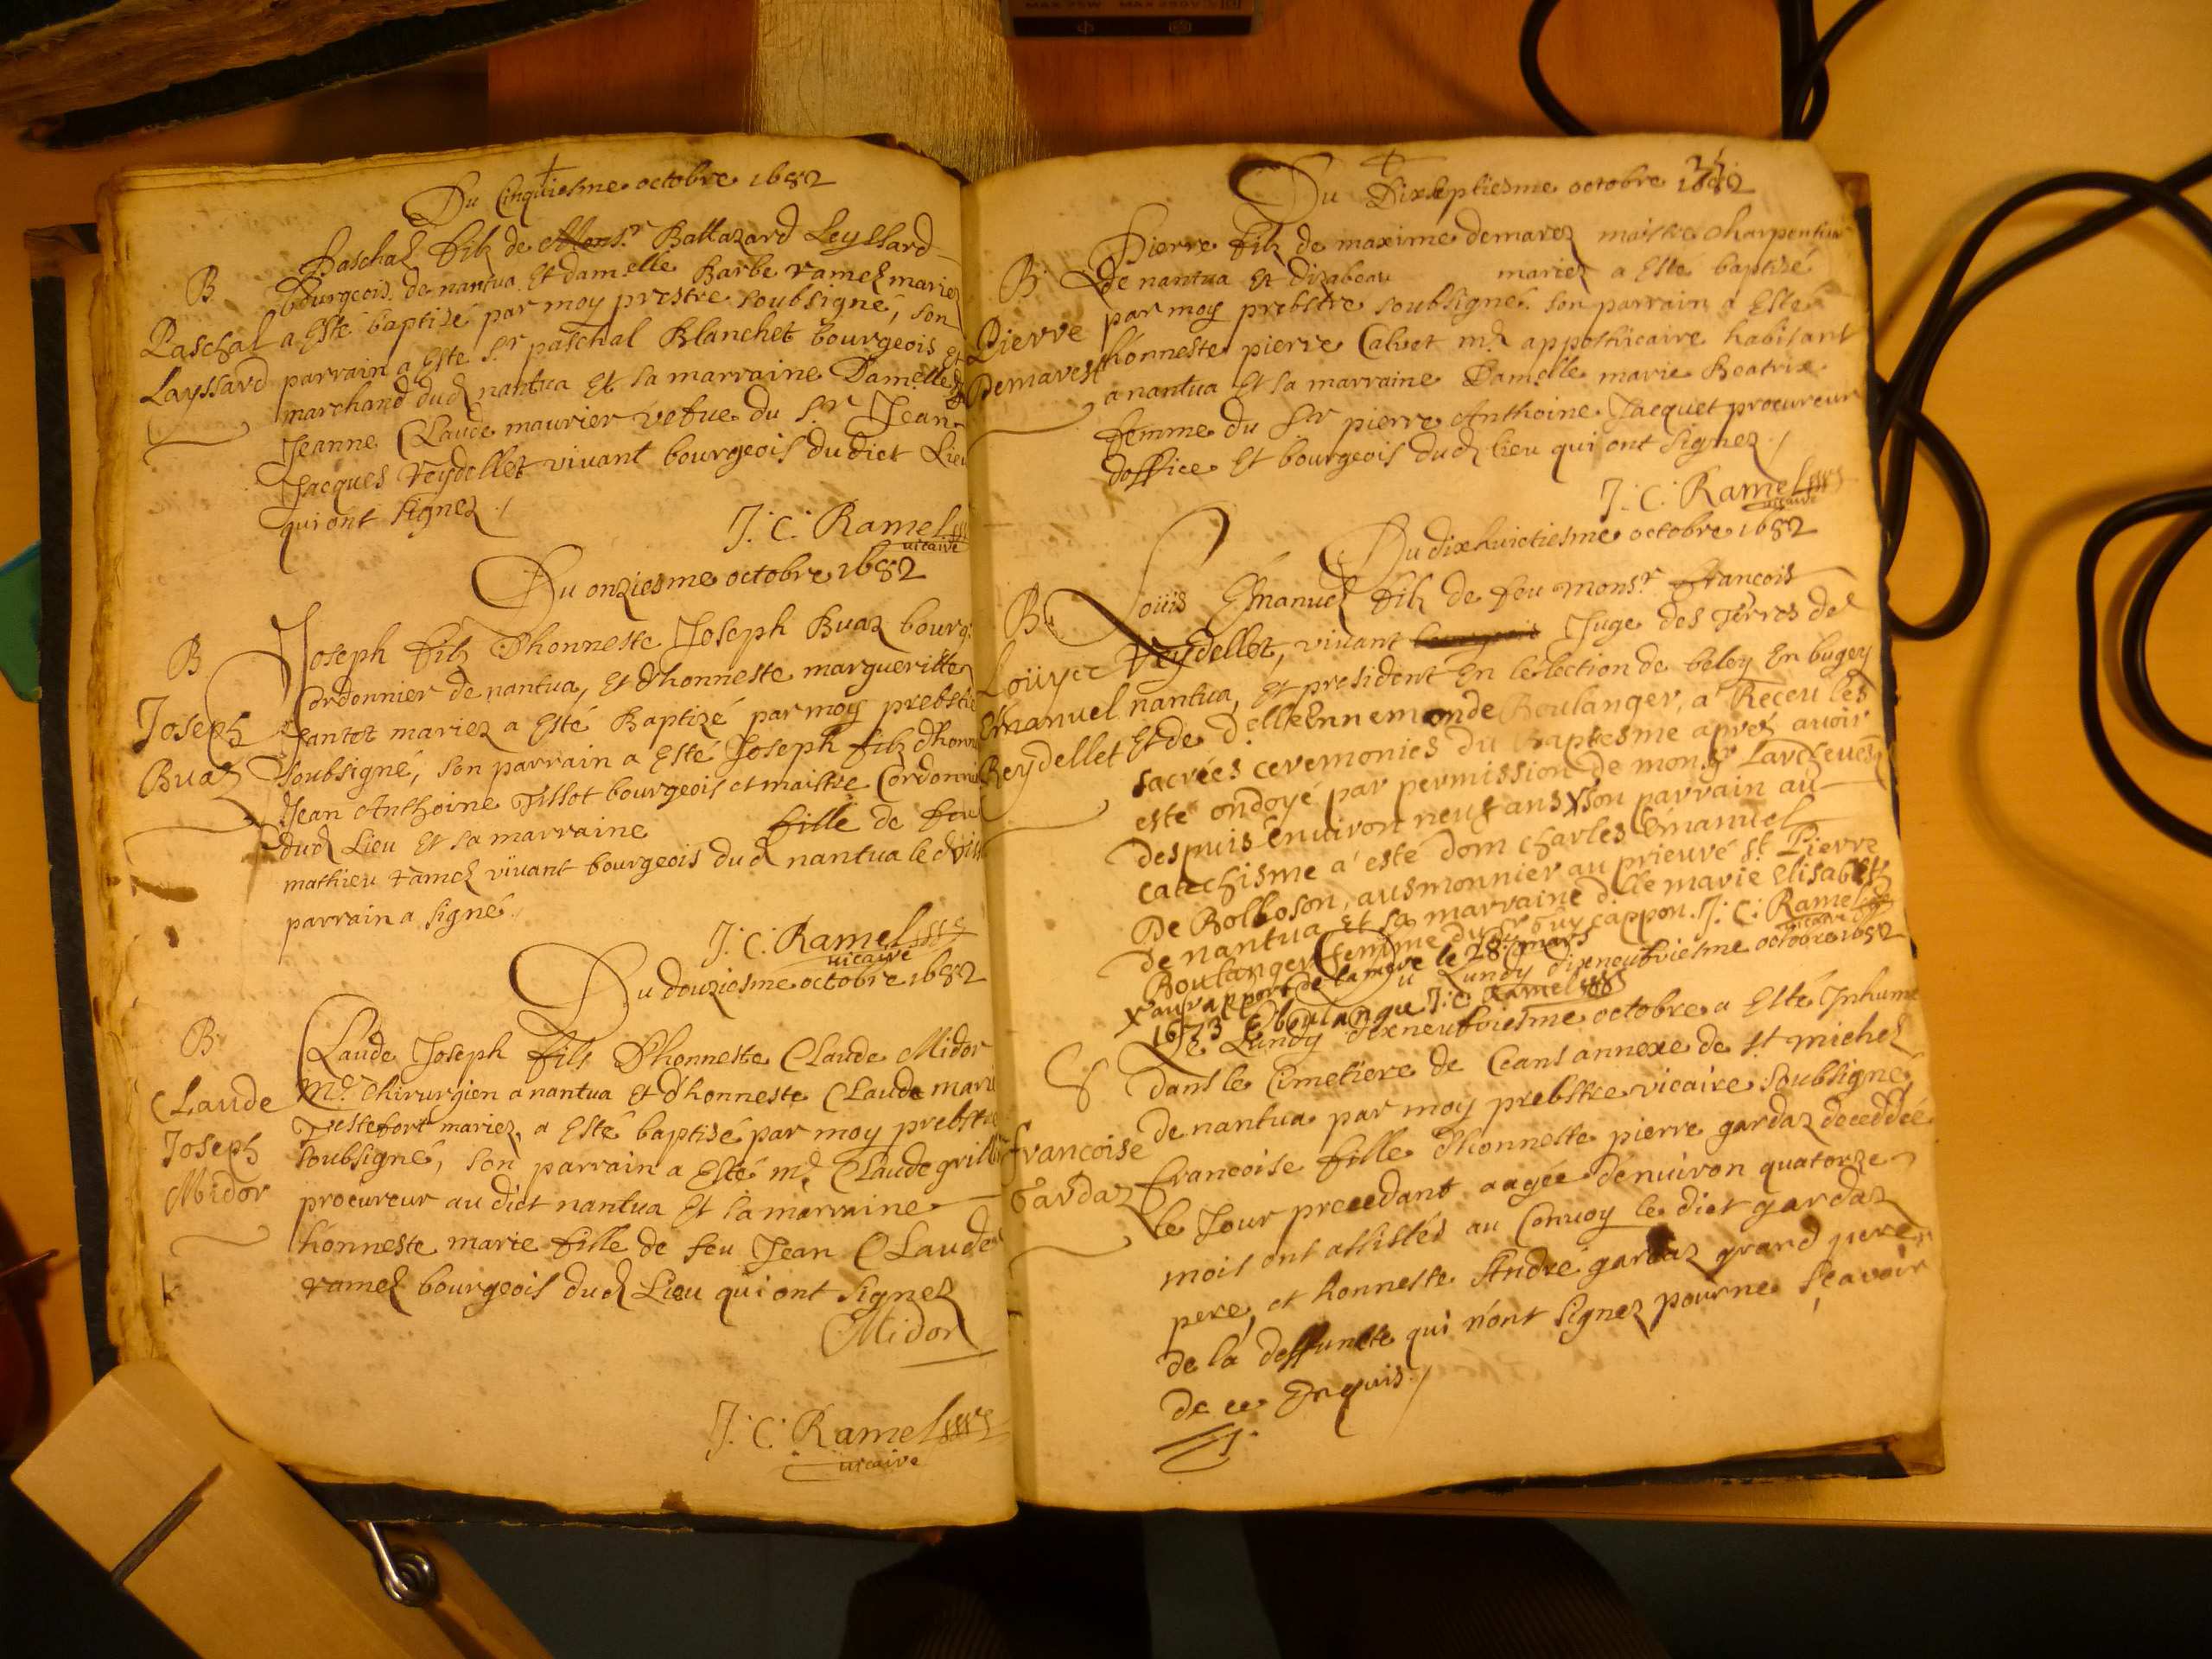 Du Cinquiesme octobre 1682
Paschal filz de Mons.r Baltazard Leyssard
B
bourgeois de nantua Et damelle Barbe ramel mariez
Paschal
a Esté baptizé par moy prestre soubsigné, son
Layssard
parrain a Este S.r paschal Blanchet bourgeois Et
marchand dud nantua Et sa marraine Damelle
Jeanne Claude maurier vefue du S.r Jean
Jacques reydellet vivant bourgeois dudict Lieu
qui ont signez ./
J. C. Ramel
vicaire
Du onziesme octobre 1682
B
Joseph filz D'honneste Joseph Buaz bourg.
Cordonnier de nantua, Et d'honneste margueritte
Joseph
Buaz
Pantet mariez a Esté Baptizé par moy prebstre
soubsigné, son parrain a Esté Joseph filz d'honn
Jean Anthoine Tillot bourgeois et maistre Cordonni
dud Lieu Et sa marraine fille de feu
mathieu ramel vivant bourgeois dud nantua le d
parrain a signé.
J. C. Ramel
vicaire
Du douziesme octobre 1682
B
Claude Joseph fils D'honneste Claude Midor
Claude
Joseph
Midor
M.e chirurgien a nantua Et d'honneste Claude mari
Testefort mariez, a Esté baptizé par moy prebstre
soubsigné, son parrain a Esté m.e Claude grill
procureur au dict nantua Et sa marraine
honneste marie fille de feu Jean Claude
ramel bourgeois dud Lieu qui ont signez
Midor
J. C. Ramel
vicaire
Du Dixseptiesme octobre 1682
B
Pierre
Demarest
Pierre filz de maxime demarez maistre charpentier
de nantua Et dizabeau mariez a Esté baptizé
par moy prebstre soubsigné. son parrain a Esté
honneste pierre Calvet m.e appothicaire habitant
a nantua Et sa marraine Damelle marie Beatrix
femme du Sr pierre Anthoine Jacquet procureur
doffice Et bourgeois dud lieu qui ont signez ./
J. C. Ramel
vicaire
Du dixhuictiesme octobre 1682
B.
Loüyce
Emanuel
Reydellet
Loüis Emanuel filz de feu mons.r francois
Reydellet, vivant Juge des Terres de
nantua, Et president En lelection de beley En bugey
Et de D.elle Ennemonde Boulanger, a Receu les
sacrées ceremonies du Baptesme aprés avoir
esté ondoyé par permission de mon.gr Larcheuesq
despuis Enuiron neuf ans X son parrain au
catechisme a esté dom charles Emanuel
De Bolboson, ausmonnier au prieuré st Pierre
de nantua Et sa marraine d.lle marie Elisabeth
Boulanger femme du Sr Guy cappon. J. C. Ramel
vicaire
X au rapport de la mere le 28 mars
1673 E boulangue J. C. Ramel
Du Lundy dixneufviesme octobre 1682
S
francoise
Gardaz
Le Lundy dixneufviesme octobre a Esté Inhumé
dans le Cimetiere de Ceans annexe de st michel
de nantua par moy prebstre vicaire soubsigné
francoise fille d'honneste pierre gardaz deceddée
le Jour precedant aagée d'enuiron quatorze
mois ont assistés au Convoy le dict gardaz
pere, et honneste André gardaz grand pere
de la deffuncte qui n'ont signez pour ne sçavoir
de ce Enquis ./